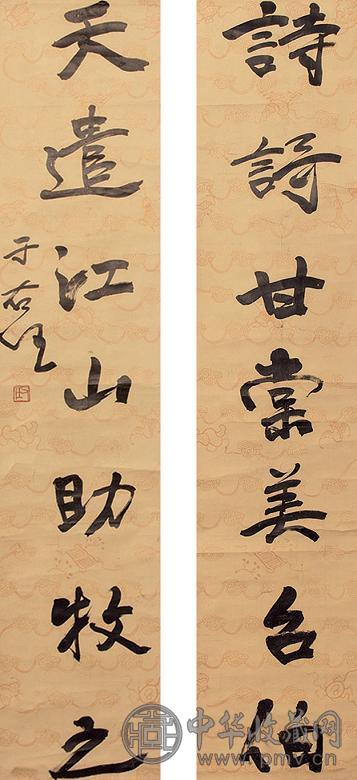 詩甘棠美召伯
天遣江山助牧之
于右任
中华收藏网
www.pmv.cn